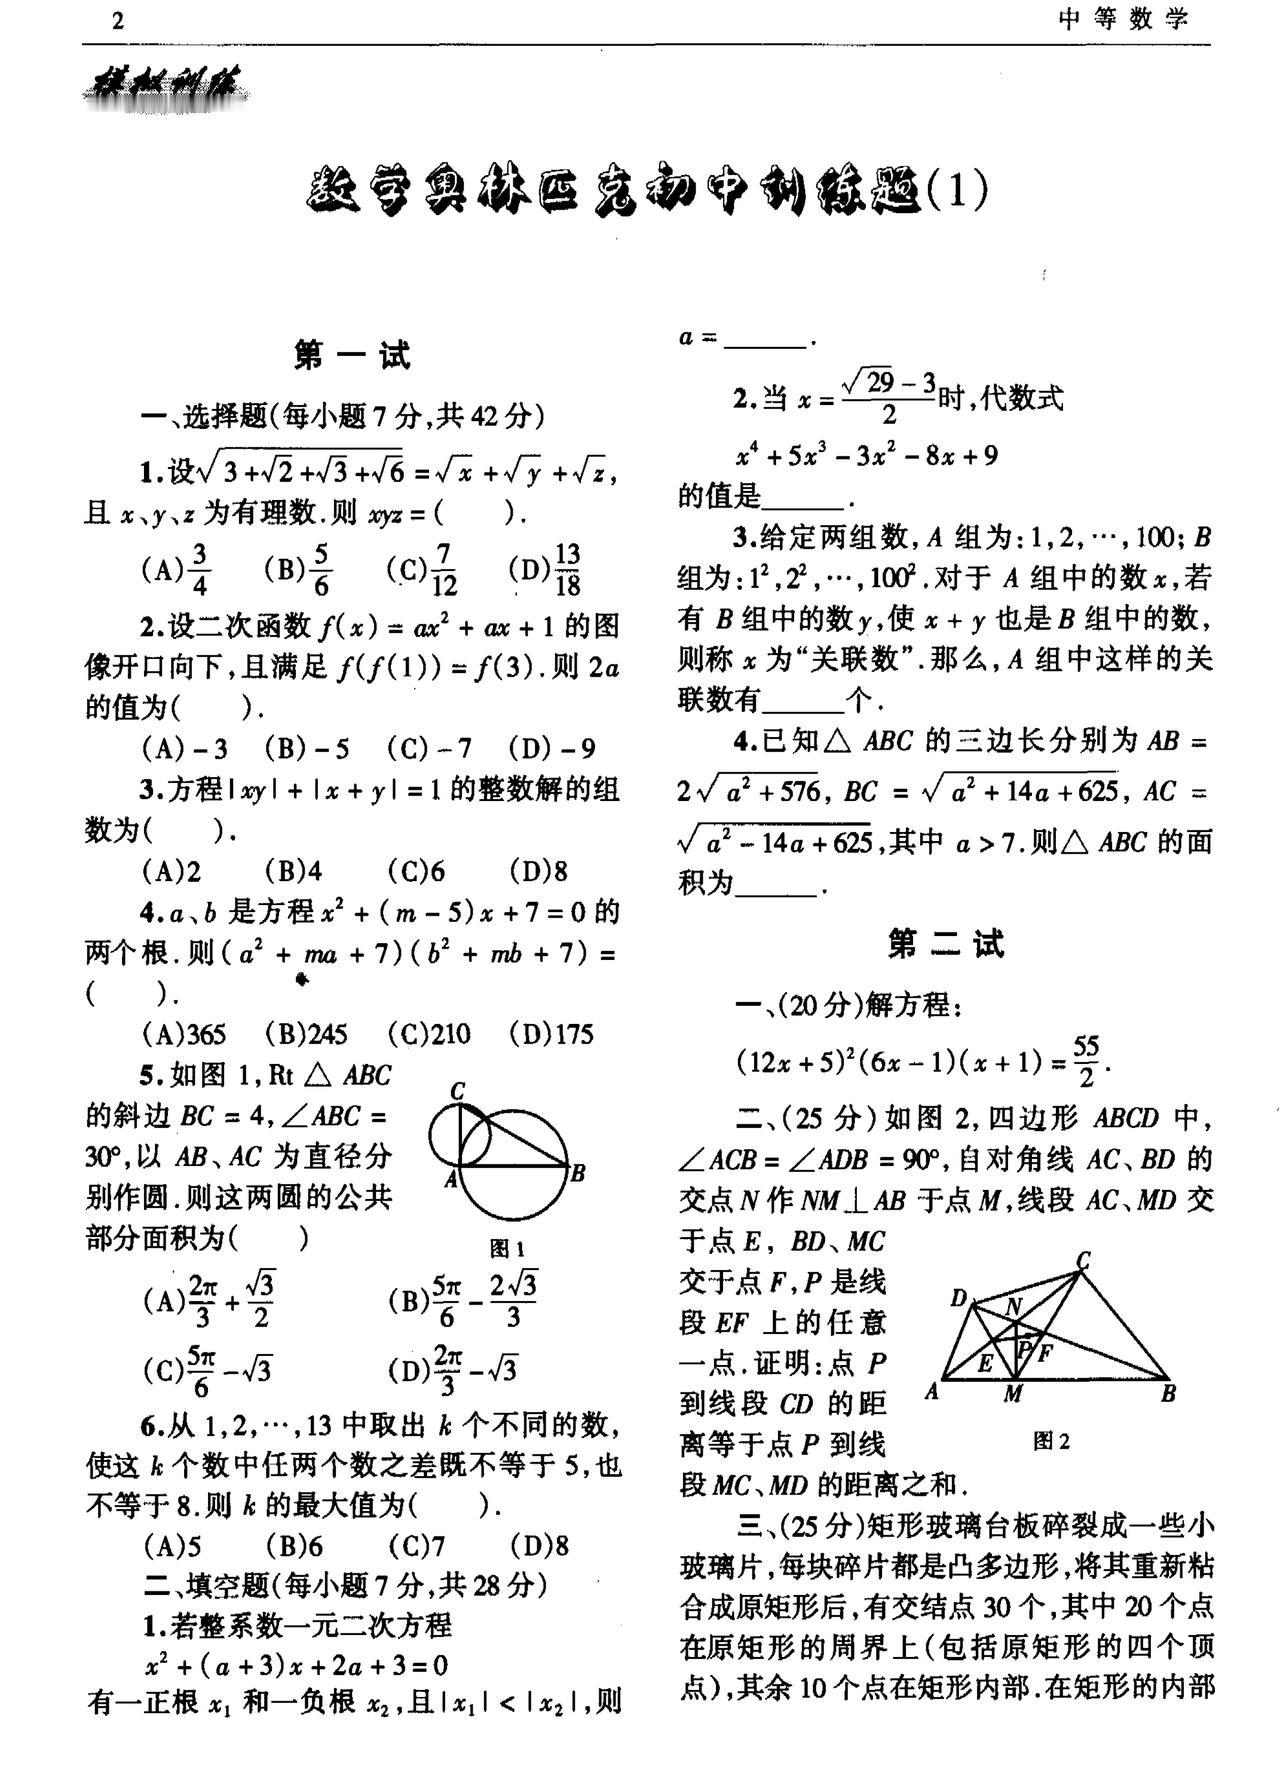 2
中等数学
模拟训练
数学奥林匹克初中训练题(1)
第一试
一、选择题(每小题7分,共42分)
1.设√(3+√2+√3+√6)=√x+√y+√z,
且 x、y、z 为有理数.则 xyz=( ).
(A)3/4 (B)5/6 (C)7/12 (D)13/18
2.设二次函数 f(x)=ax²+ax+1 的图
像开口向下,且满足 f(f(1))=f(3).则 2a
的值为( ).
(A)-3 (B)-5 (C)-7 (D)-9
3.方程|xy|+|x+y|=1 的整数解的组
数为( ).
(A)2 (B)4 (C)6 (D)8
4.a、b 是方程 x²+(m-5)x+7=0 的
两个根.则(a²+ma+7)(b²+mb+7)=
( ).
(A)365 (B)245 (C)210 (D)175
5.如图1,Rt△ABC
的斜边 BC=4,∠ABC=
30°,以 AB、AC 为直径分
别作圆.则这两圆的公共
部分面积为( )
C
A
B
图1
(A)2π/3+√3/2 (B)5π/6-2√3/3
(C)5π/6-√3 (D)2π/3-√3
6.从1,2,…,13中取出 k 个不同的数,
使这 k 个数中任两个数之差既不等于5,也
不等于8.则 k 的最大值为( ).
(A)5 (B)6 (C)7 (D)8
二、填空题(每小题7分,共28分)
1.若整系数一元二次方程
x²+(a+3)x+2a+3=0
有一正根 x₁ 和一负根 x₂,且|x₁|<|x₂|,则
a=______.
2.当 x=(√29-3)/2时,代数式
x⁴+5x³-3x²-8x+9
的值是______.
3.给定两组数,A 组为:1,2,…,100;B
组为:1²,2²,…,100².对于 A 组中的数 x,若
有 B 组中的数 y,使 x+y 也是 B 组中的数,
则称 x 为“关联数”.那么,A 组中这样的关
联数有______个.
4.已知△ABC 的三边长分别为 AB=
2√(a²+576), BC=√(a²+14a+625), AC=
√(a²-14a+625),其中 a>7.则△ABC 的面
积为______.
第二试
一、(20分)解方程:
(12x+5)²(6x-1)(x+1)=55/2.
二、(25分)如图2,四边形 ABCD 中,
∠ACB=∠ADB=90°,自对角线 AC、BD 的
交点 N 作 NM⊥AB 于点 M,线段 AC、MD 交
于点 E, BD、MC
交于点 F,P 是线
段 EF 上的任意
一点.证明:点 P
到线段 CD 的距
离等于点 P 到线
段 MC、MD 的距离之和.
C
D
N
E
P
F
A
M
B
图2
三、(25分)矩形玻璃台板碎裂成一些小
玻璃片,每块碎片都是凸多边形,将其重新粘
合成原矩形后,有交结点30个,其中20个点
在原矩形的周界上(包括原矩形的四个顶
点),其余10个点在矩形内部.在矩形的内部